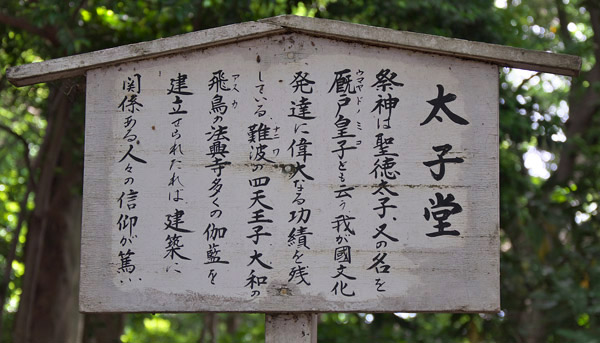 太子堂
祭神は聖徳太子、又の名を
厩戸皇子とも云う我が國文化
ウマヤドノミコ
発達に偉大なる功績を残
している。難波の四天王子、大和の
ナニワ
飛鳥の法興寺多くの伽藍を
アスカ
建立せられたれば、建築に
関係ある人々の信仰が篤い